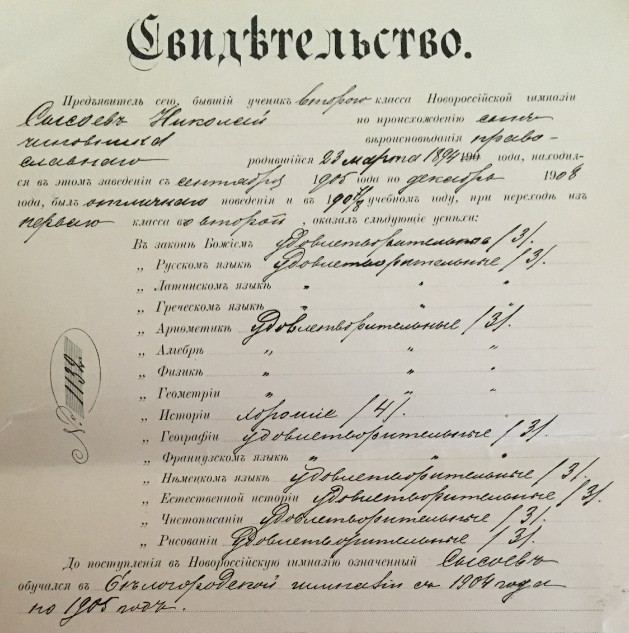 Свидѣтельство.
Предъявитель сего, бывшій ученикъ второго класса Новороссійской гимназіи
Сысоевъ Николай по происхожденію сынъ
чиновника вѣроисповѣданія право-
славнаго родившійся 23 марта 1894 190 года, находил-
ся въ этомъ заведеніи съ сентября 1905 года по декабрь 1908
года, былъ отличнаго поведенія и въ 1907/8 учебномъ году, при переходѣ изъ
перваго класса во второй, оказалъ слѣдующіе успѣхи:
Въ законѣ Божіемъ удовлетворительные /3/.
„ Русскомъ языкѣ удовлетворительные /3/.
„ Латинскомъ языкѣ „ „ „
„ Греческомъ языкѣ „ „ „
„ Ариѳметикѣ Удовлетворительные /3/.
„ Алгебрѣ „ „ „
„ Физикѣ „ „ „
„ Геометріи „ „ „
„ Исторіи хорошіе /4/.
„ Географіи удовлетворительные /3/.
„ Французскомъ языкѣ „ „ „
„ Нѣмецкомъ языкѣ удовлетворительные /3/.
„ Естественной исторіи удовлетворительные /3/.
„ Чистописаніи Удовлетворительные /3/.
„ Рисованіи Удовлетворительные /3/.
До поступленія въ Новороссійскую гимназію означенный Сысоевъ
обучался въ Бѣлогородской гимназіи съ 1904 года
по 1905 годъ.
№ 1132